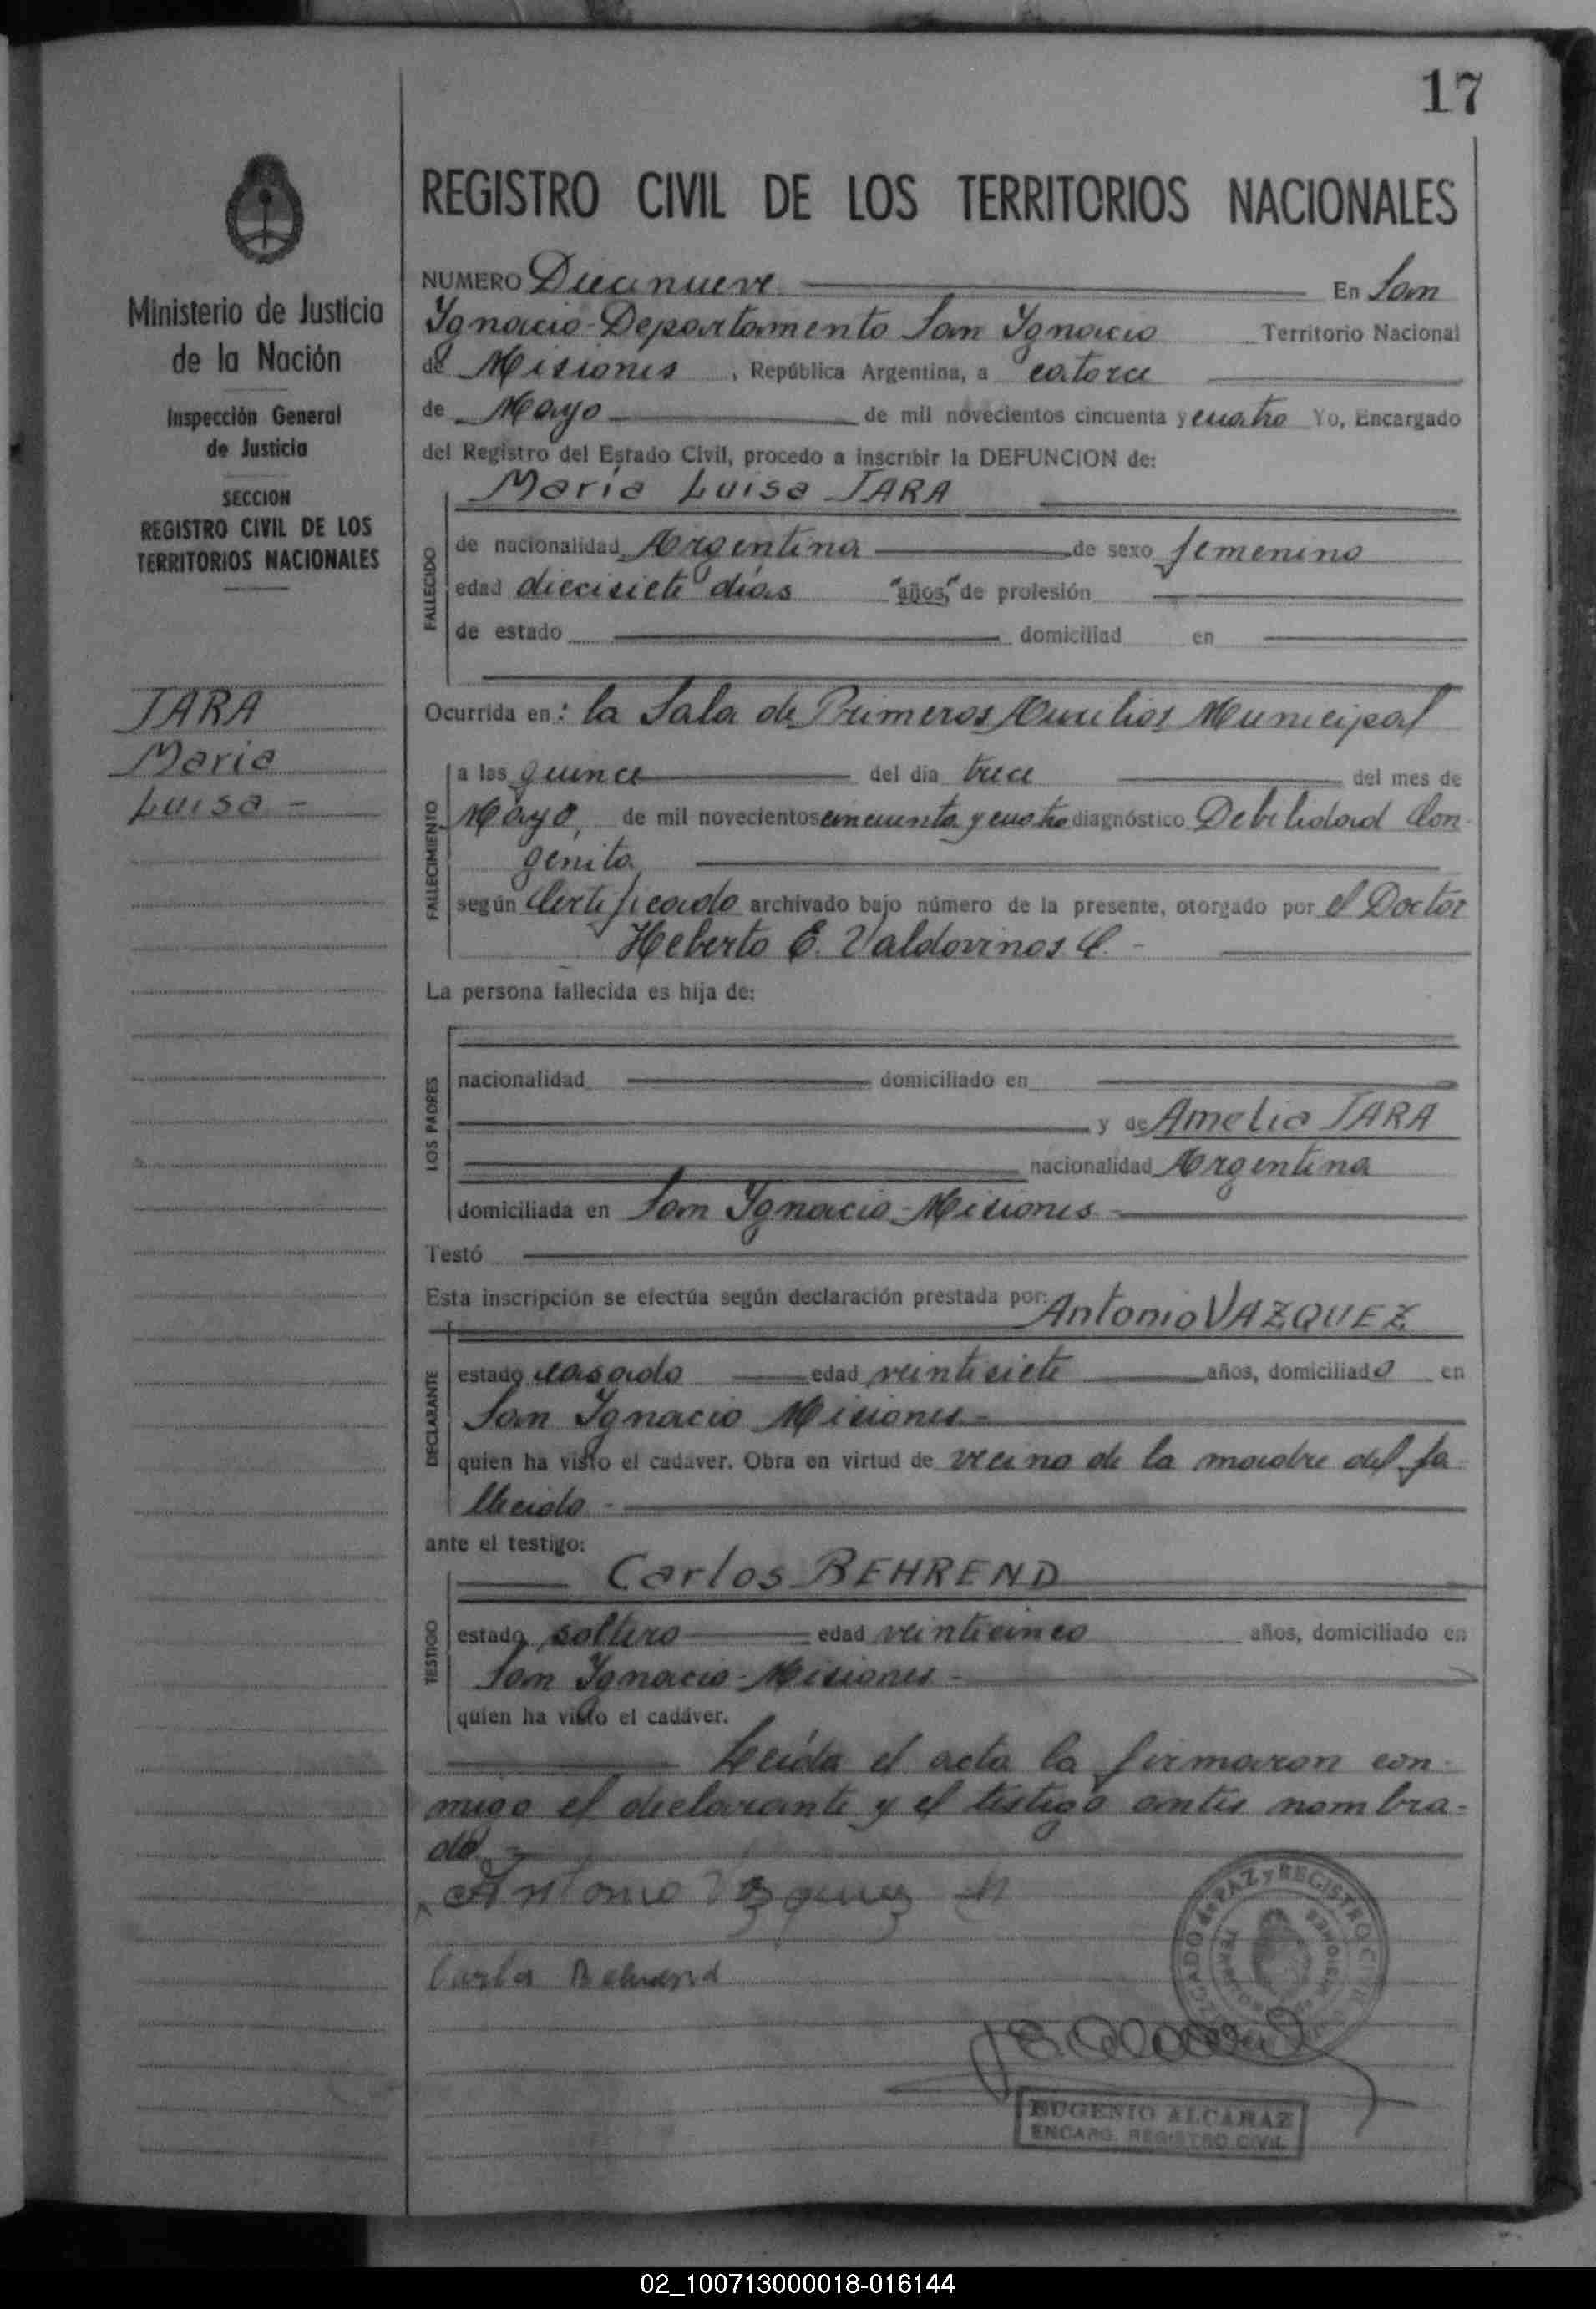 17
REGISTRO CIVIL DE LOS TERRITORIOS NACIONALES
Ministerio de Justicia
de la Nación
Inspección General
de Justicia
SECCION
REGISTRO CIVIL DE LOS
TERRITORIOS NACIONALES
JARA
Maria
Luisa -
NUMERO Diecinueve En San
Ignacio - Departamento San Ignacio Territorio Nacional
de Misiones, República Argentina, a catorce
de Mayo de mil novecientos cincuenta y cuatro Yo, Encargado
del Registro del Estado Civil, procedo a inscribir la DEFUNCION de:
María Luisa JARA
FALLECIDO
de nacionalidad Argentina de sexo femenino
edad diecisiete días "años," de profesión
de estado domiciliad en
Ocurrida en: la Sala de Primeros Auxilios Municipal
FALLECIMIENTO
a las quince del día trece del mes de
Mayo, de mil novecientos cincuenta y cuatro diagnóstico Debilidad Con-
génita
según Certificado archivado bajo número de la presente, otorgado por el Doctor
Heberto E. Valdovinos C. -
La persona fallecida es hija de:
LOS PADRES
nacionalidad domiciliado en
y de Amelia JARA
nacionalidad Argentina
domiciliada en San Ignacio - Misiones -
Testó
Esta inscripción se efectúa según declaración prestada por: Antonio VAZQUEZ
DECLARANTE
estado casado edad veintisiete años, domiciliado en
San Ignacio Misiones -
quien ha visto el cadáver. Obra en virtud de vecino de la madre del fa-
llecido -
ante el testigo:
Carlos BEHREND
TESTIGO
estado soltero edad veinticinco años, domiciliado en
San Ignacio - Misiones -
quien ha visto el cadáver.
Leída el acta la firmaron con-
migo el declarante y el testigo antes nombra-
do. -
Antonio Vazquez h
Carlos Behrend
JUZGADO de PAZ y REGISTRO CIVIL
EUGENIO ALCARAZ
ENCARG. REGISTRO CIVIL
02_100713000018-016144